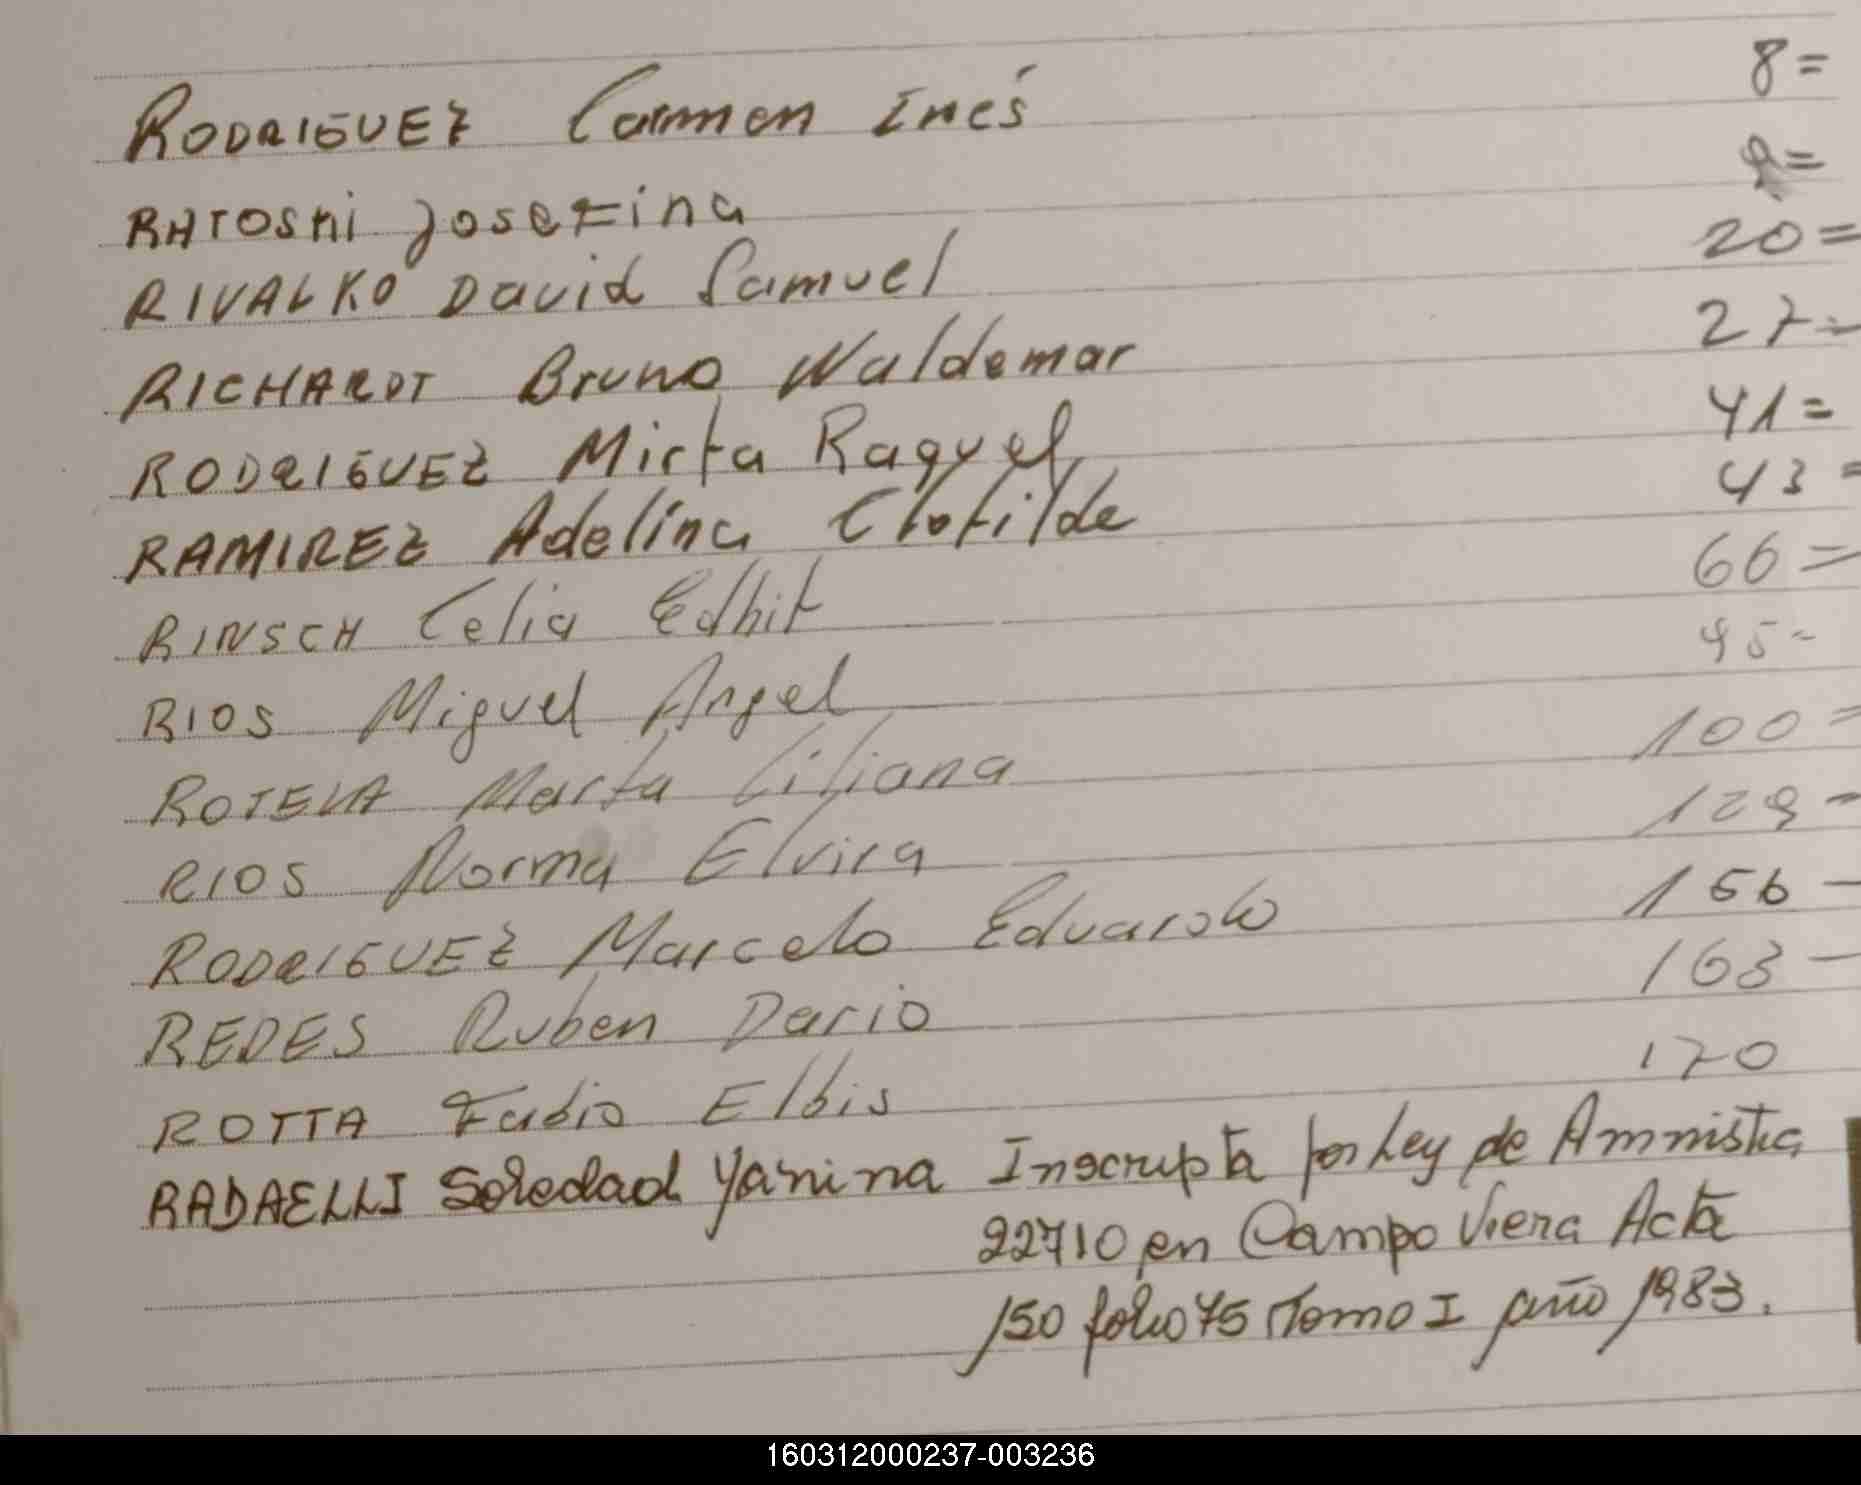 RODRIGUEZ Carmen Inés 8=
RATOSKI Josefina 9=
RIVALKO David Samuel 20=
RICHARDT Bruno Waldemar 27=
RODRIGUEZ Mirta Raquel 41=
RAMIREZ Adelina Clotilde 43=
RINSCH Celia Edhit 66=
RIOS Miguel Angel 95-
ROTELA Marta Liliana 100=
RIOS Norma Elvira 129-
RODRIGUEZ Marcelo Eduardo 156-
REDES Ruben Dario 163-
ROTTA Fabio Elbis 170
RADAELLI Soledad Yanina Inscripta por Ley de Amnistia
22710 en Campo Viera Acta
150 folio 75 Tomo I año 1983.
160312000237-003236